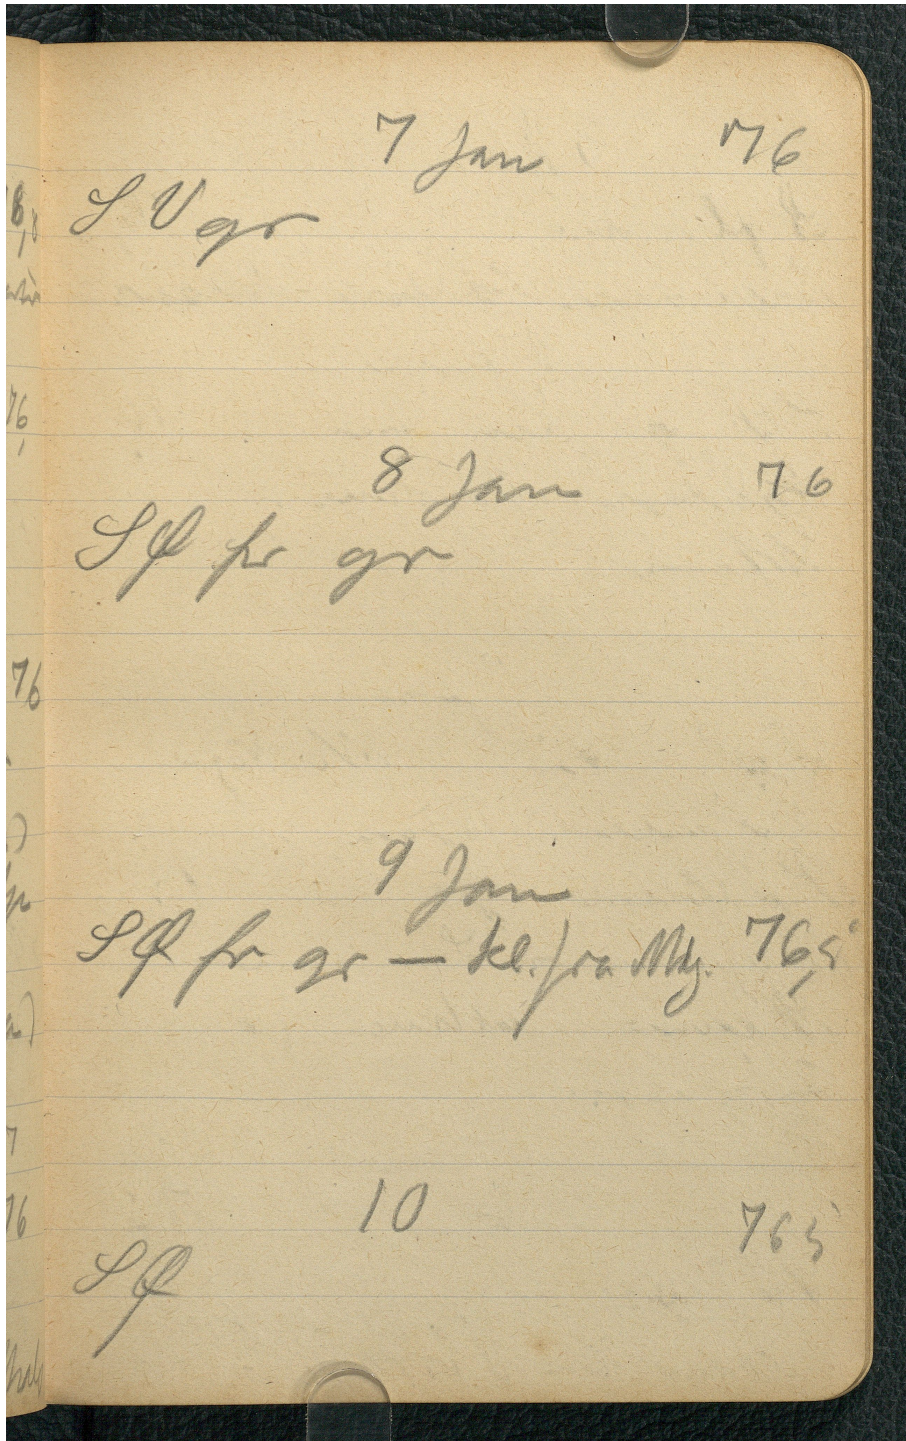 7 Jan 76
S V gr
8 Jan 76
S Ø fr gr
9 Jan
S Ø fr gr — kl. fra Mdg. 76,5
10 765
S Ø